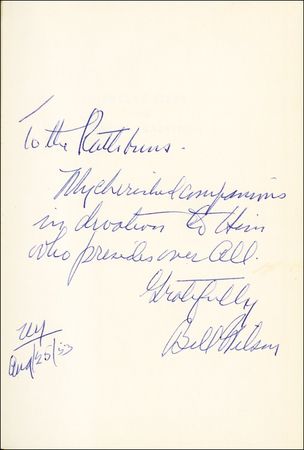 To the Rathbuns -
My cherished companions
in devotion to Him
who presides over All.
Gratefully
Bill Wilson
NY
Aug/25/53